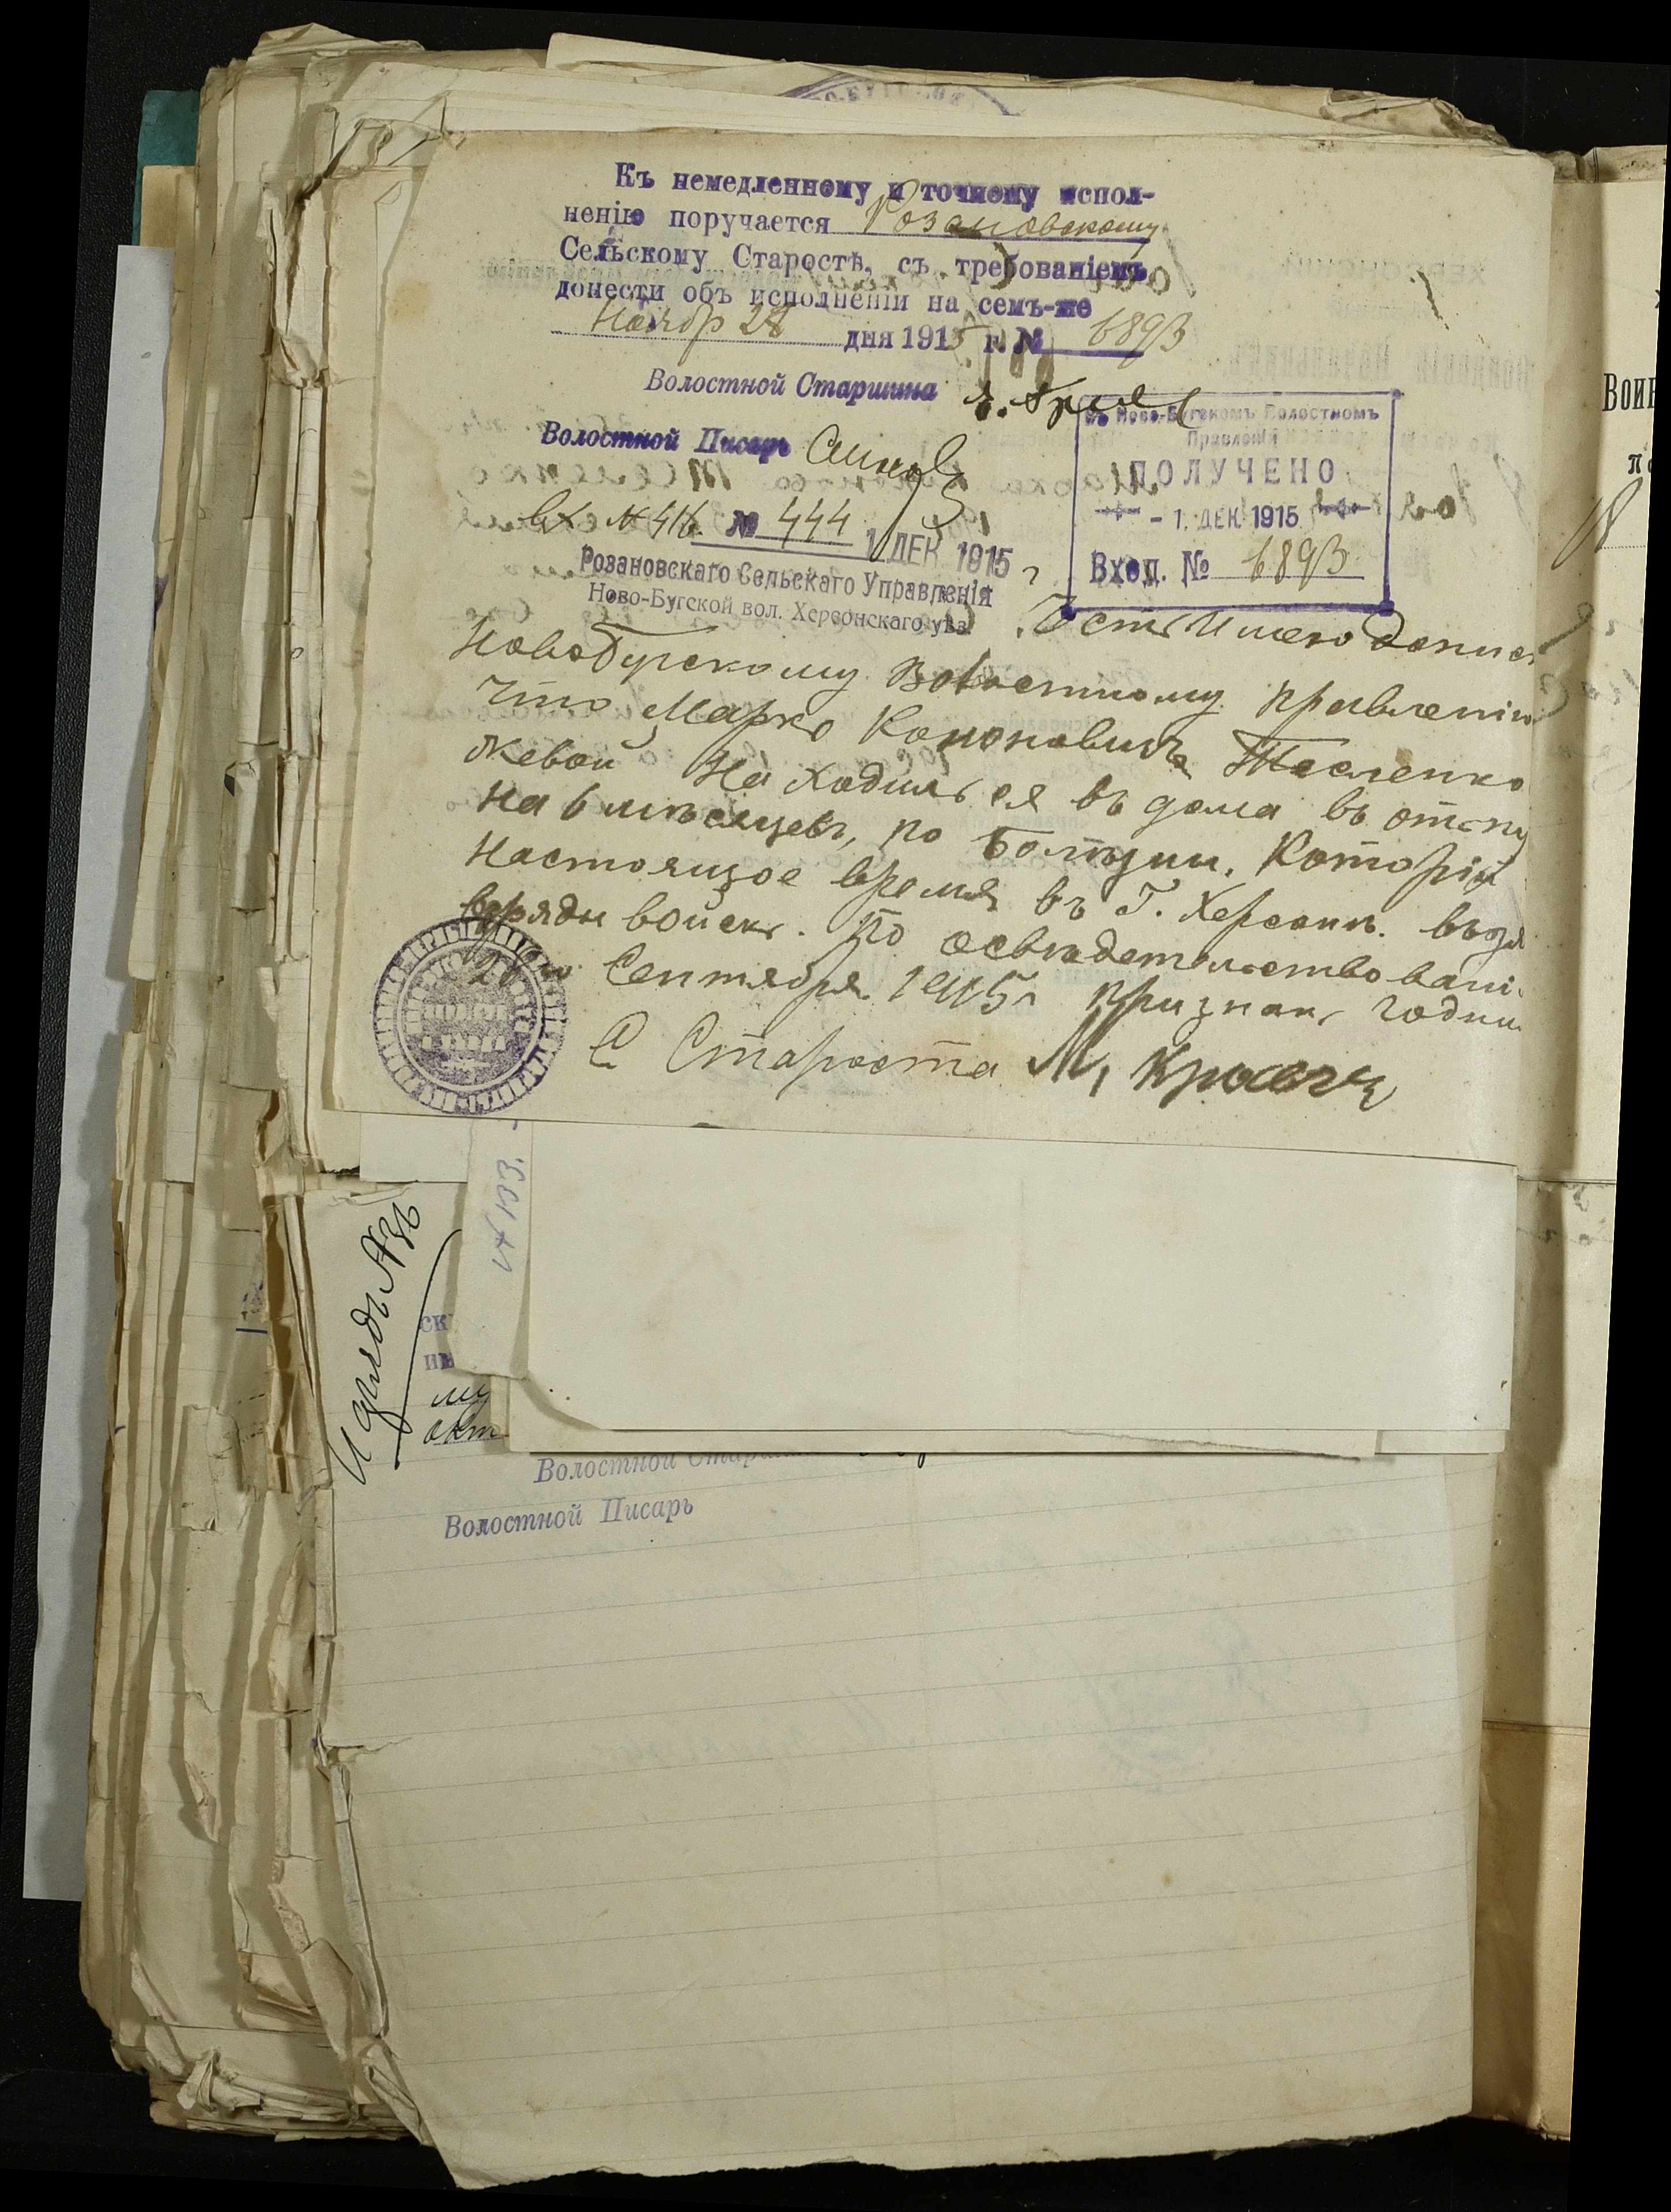 Къ немедленному и точному испол-
ненію поручается Розановскому
Сельскому Старостѣ, съ требованіемъ
донести объ исполненіи на семъ-же
Нояб 28 дня 1915 г. № 6893
Волостной Старшина
Волостной Писарь
Въ Ново-Бугскомъ Волостномъ
Правленіи
ПОЛУЧЕНО
- 1. ДЕК 1915
Вход. № 6893
Вх № 416 № 444 1 ДЕК 1915 г
Розановскаго Сельскаго Управленія
Ново-Бугской вол. Херсонскаго уѣз.
Честь Имею донис
Новобугскому Волостному правлению
Что Марко Кононовичъ Тесленко
Находилься въ дома въ отпу
на 6 мѣсяцевъ, по Болѣзни. Которій
Настоящое время въ Г. Херсонѣ.
вряды войскъ. По освѣдетельствовані
26го Сентября 1915г признанъ годни
С Староста М, Кравец
№ 133.
№ 36
ск
му
окт
Волостной Старши
Волостной Писарь
Воин